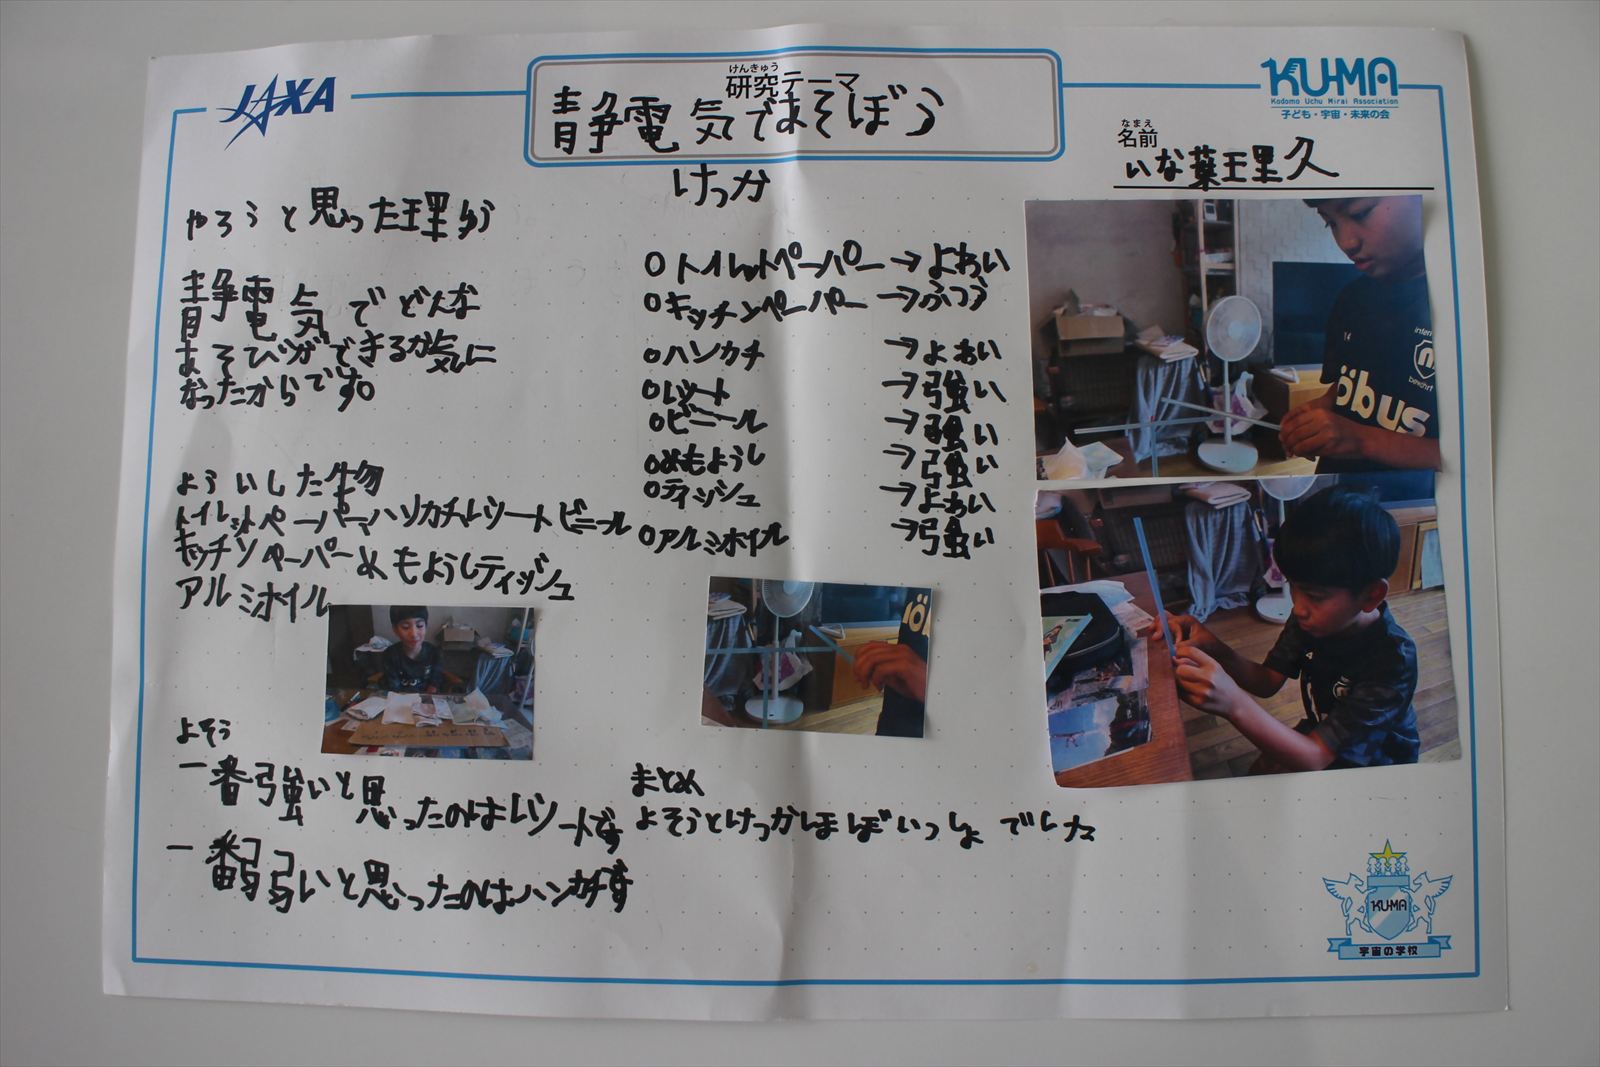 JAXA
けんきゅう
研究テーマ
静電気であそぼう
KU-MA
Kodomo Uchu Mirai Association
子ども・宇宙・未来の会
なまえ
名前
いな葉王里久
やろうと思った理ゆう
静電気でどんな
あそびができるか気に
なったからです。
よういした物
トイレットペーパーハンカチレシートビニール
キッチンペーパーめもようしティッシュ
アルミホイル
よそう
一番強いと思ったのはレシートです
一番弱いと思ったのはハンカチです
けっか
○トイレットペーパー→よわい
○キッチンペーパー→ふつう
○ハンカチ→よわい
○レシート→強い
○ビニール→強い
○めもようし→強い
○ティッシュ→よわい
○アルミホイル→強い
まとめ
よそうとけっかはほぼいっしょでした
öbus
KU-MA
宇宙の学校